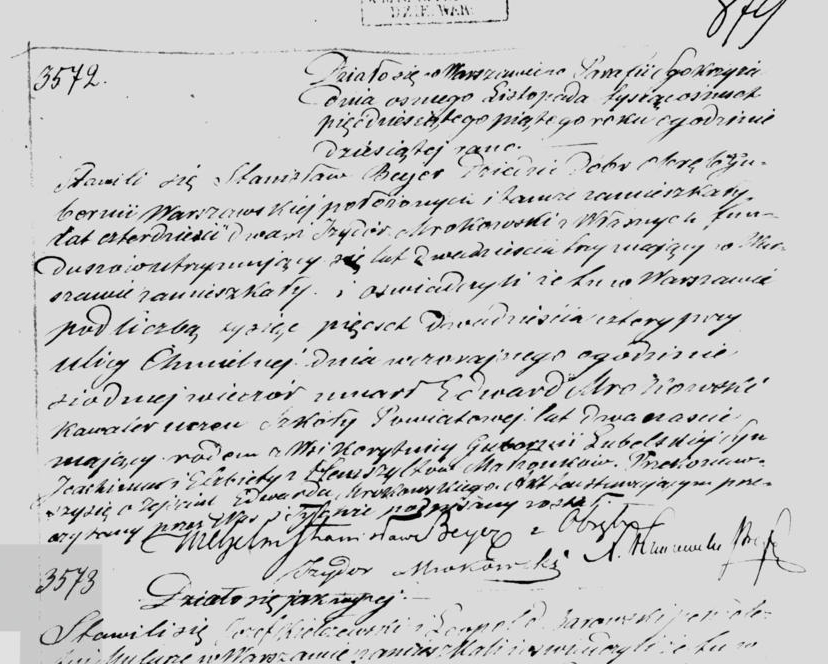 DZIE. WAR.
879
3572.
Działo się w Warszawie w Parafii Sgo Krzyża
dnia osmego Listopada tysiąc osmset
pięćdziesiątego piątego roku o godzinie
dziesiątej rano.
Stawili się Stanisław Beyer dziedzic Dobr Gu-
bernii Warszawskiej położonych i tamże zamieszkały
lat czterdzieści dwa i Izydor Mrokowski z Własnych fun-
duszów utrzymujący się lat dwadzieścia trzy mający w War-
szawie zamieszkały. i oświadczyli że tu w Warszawie
pod liczbą tysiąc pięcset dwadzieścia cztery przy
ulicy Chmielnej dnia wczorajszego o godzinie
siodmej wieczór umarł Edward Mrokowski
Kawaler uczeń Szkoły Powiatowej lat dwanaście
mający rodem z Wsi Korytnicy Gubernii Lubelskiej syn
Joachima i Elżbiety z Małżonków. Przekonaw-
szy się o zejściu Edwarda Mrokowskiego Akt ten stawającym prze-
czytany przez Nas i podpisany został.
Stanisław Beyer z
Izydor Mrokowski
3573
Działo się jak wyżej.
Stawili się Józef Kielczewski i Leopold
w Warszawie zamieszkali i oświadczyli że tu w